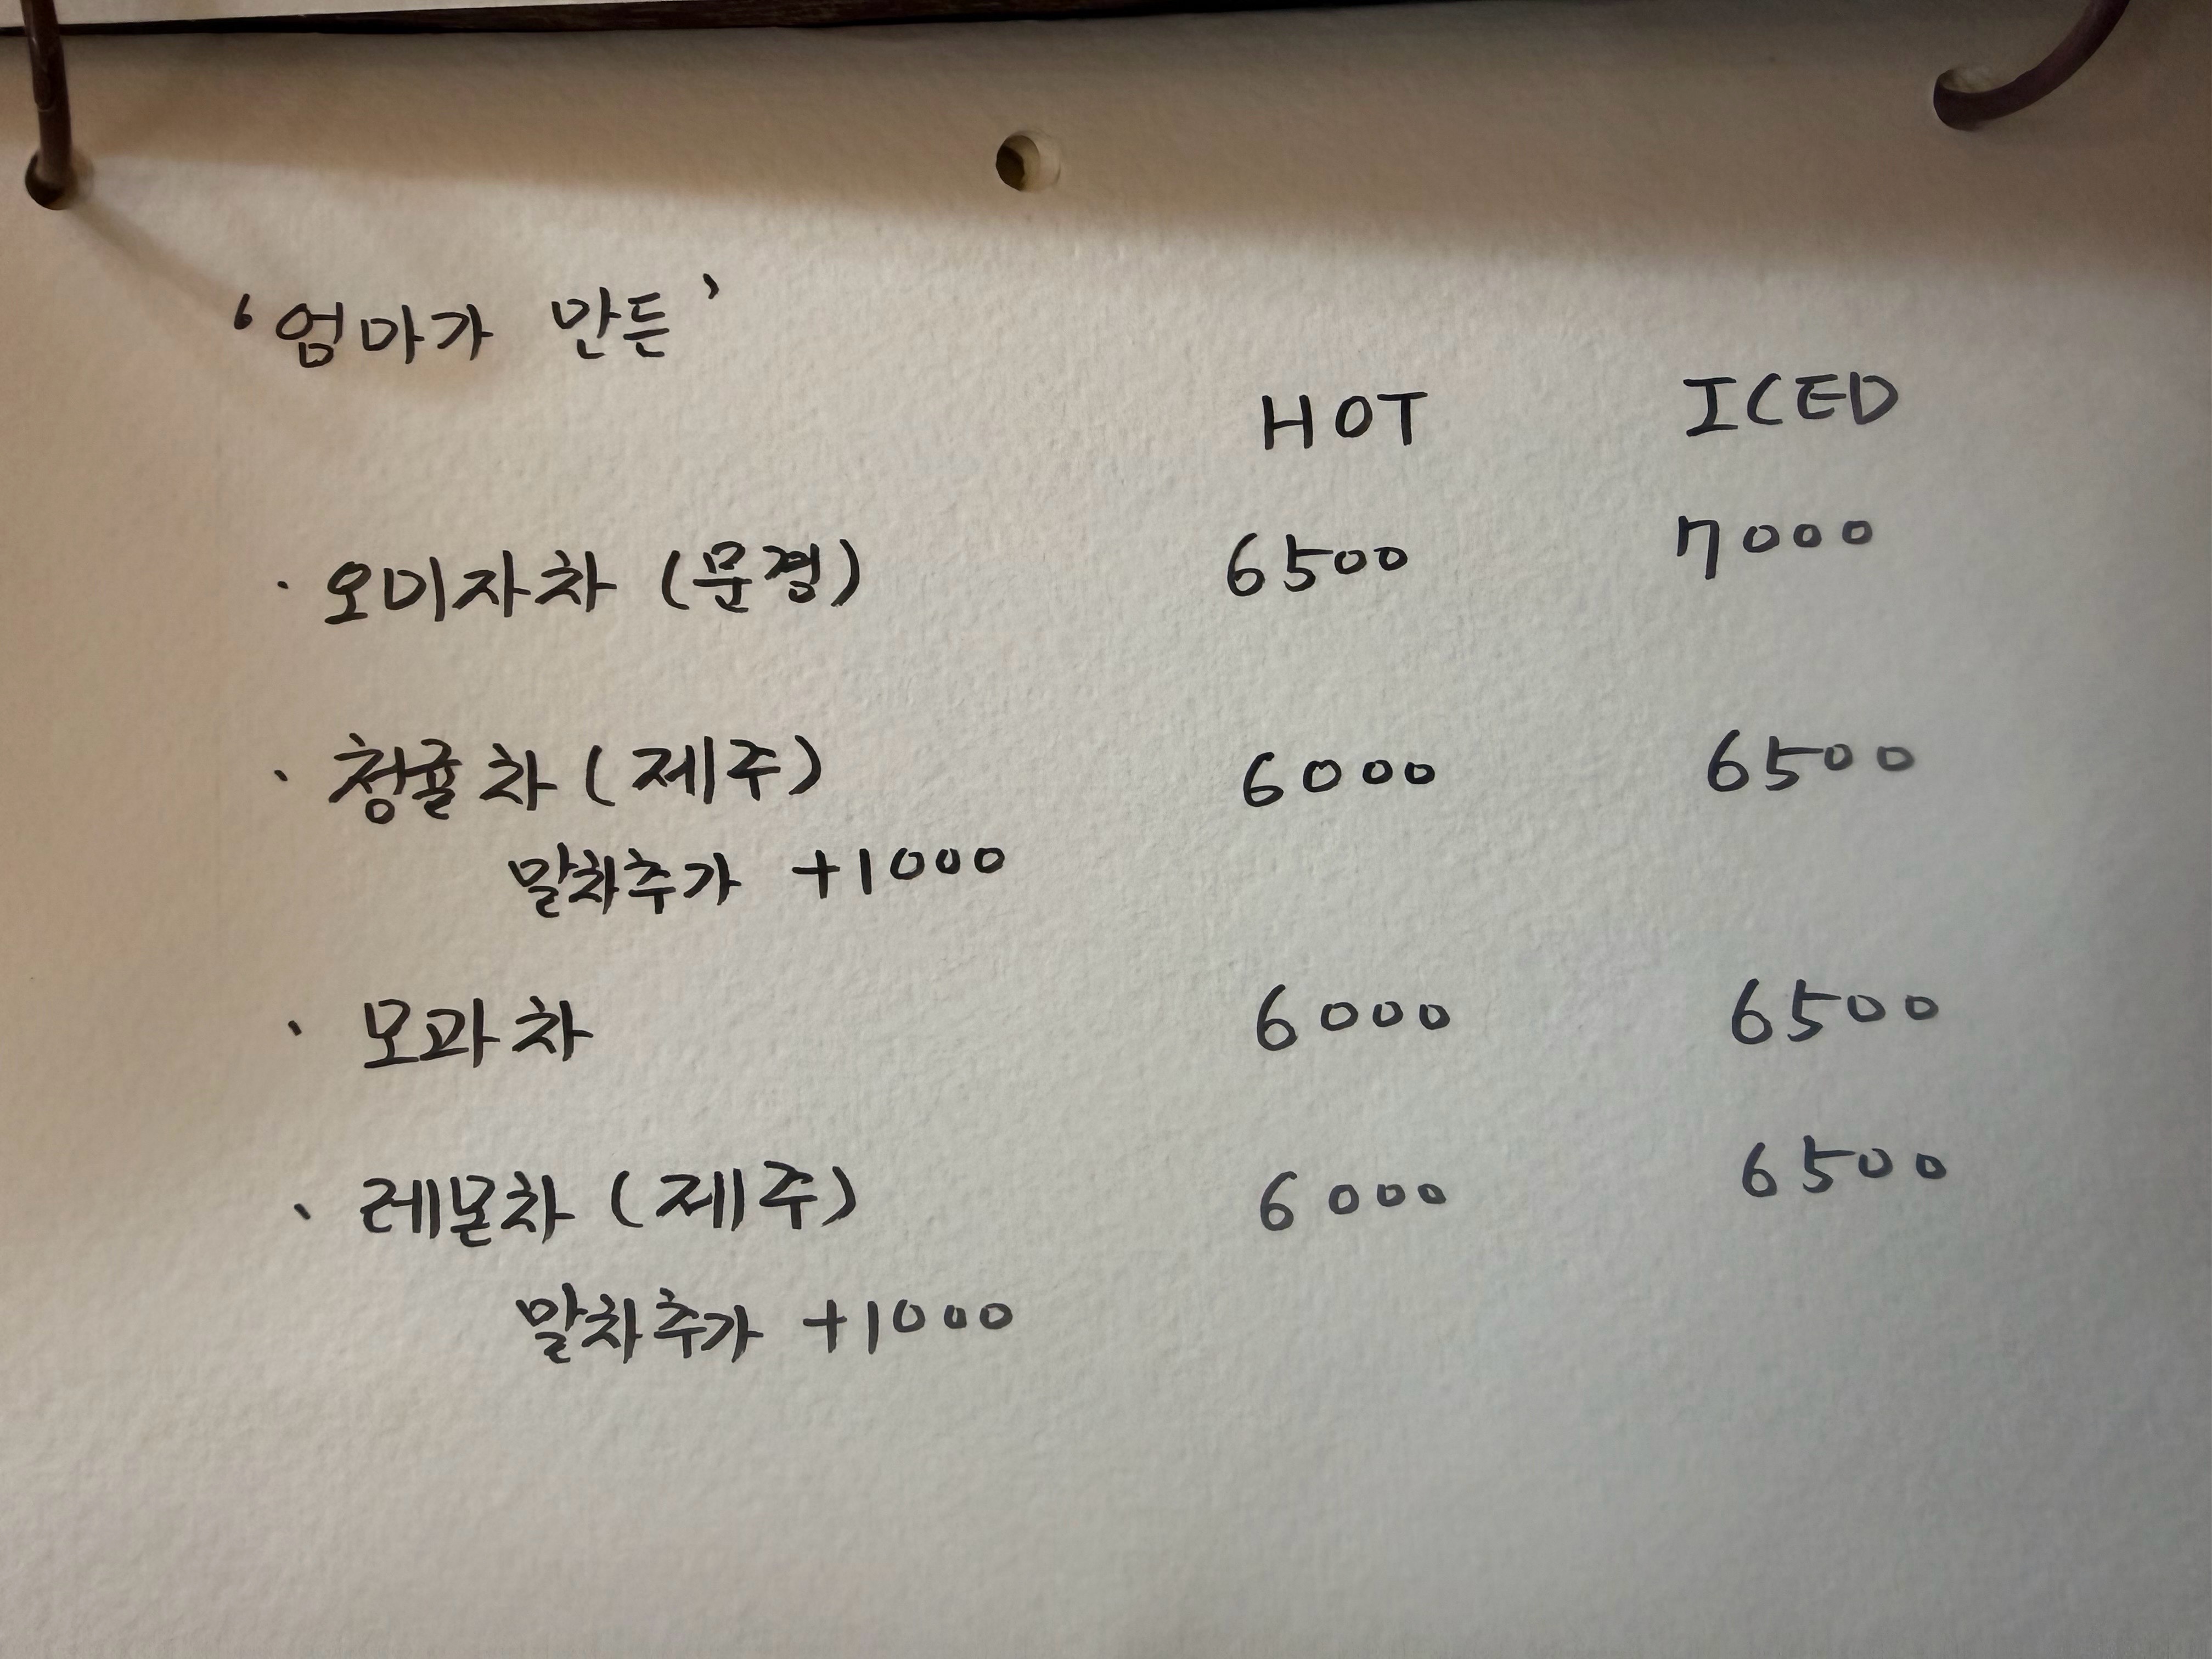 ‘엄마가 만든’
HOT ICED
· 오미자차 (문경) 6500 7000
· 청귤차 (제주) 6000 6500
말차추가 +1000
· 모과차 6000 6500
· 레몬차 (제주) 6000 6500
말차추가 +1000